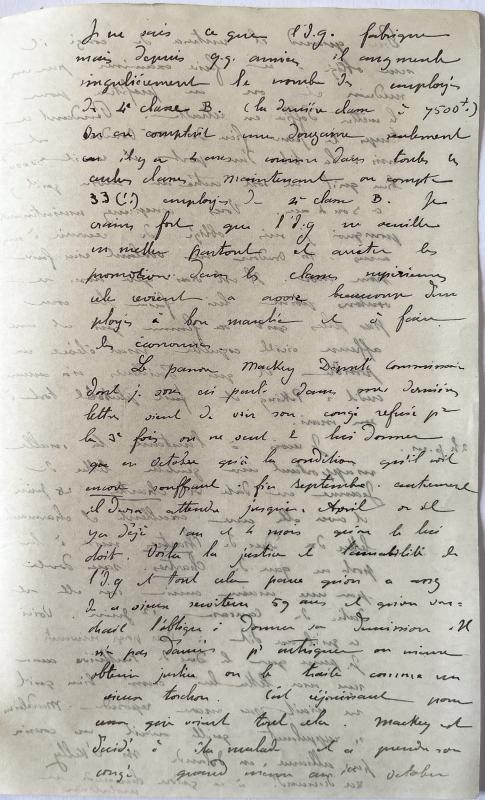 Je ne sais ce que l'I.g. fabrique
mais depuis q.q. années il augmente
singulièrement le nombre des employés
de 4e classe B. (la dernière classe à 7500f.)
On en comptait une douzaine seulement
ou il y a 4 ans comme dans toutes les
autres classes maintenant on compte
33 (!!) employés de 4e classe B. Je
crains fort que l'I.g ne veuille
en mettre partout et arrêter les
promotions dans les classes supérieures
cela revient à avoir beaucoup d'em
ployés à bon marché et à faire
des économies.
Le pauvre Mackey Deput Commissair
dont je vous ai parlé dans mes dernières
lettre vient de voir son congé refusé pr
la 3e fois on ne veut le lui donner
qu'en octobre qu'à la condition qu'il soit
encore souffrant fin septembre autrement
il devra attendre jusqu'en April or il
y a déjà 1 an et 4 mois qu'on le lui
doit. Voilà la justice et l'amabilité de
l'I.g et tout cela parce qu'on a
de ce vieux serviteur 59 ans et qu'on vou-
drait l'obliger à donner sa démission Il
n'a pas d'amis pr ou même
obtenir justice on le traite comme un
vieux torchon. C'est réjouissant pour
ceux qui voient tout cela. Mackey est
décidé à malade et à prendre son
congé quand même en octobre